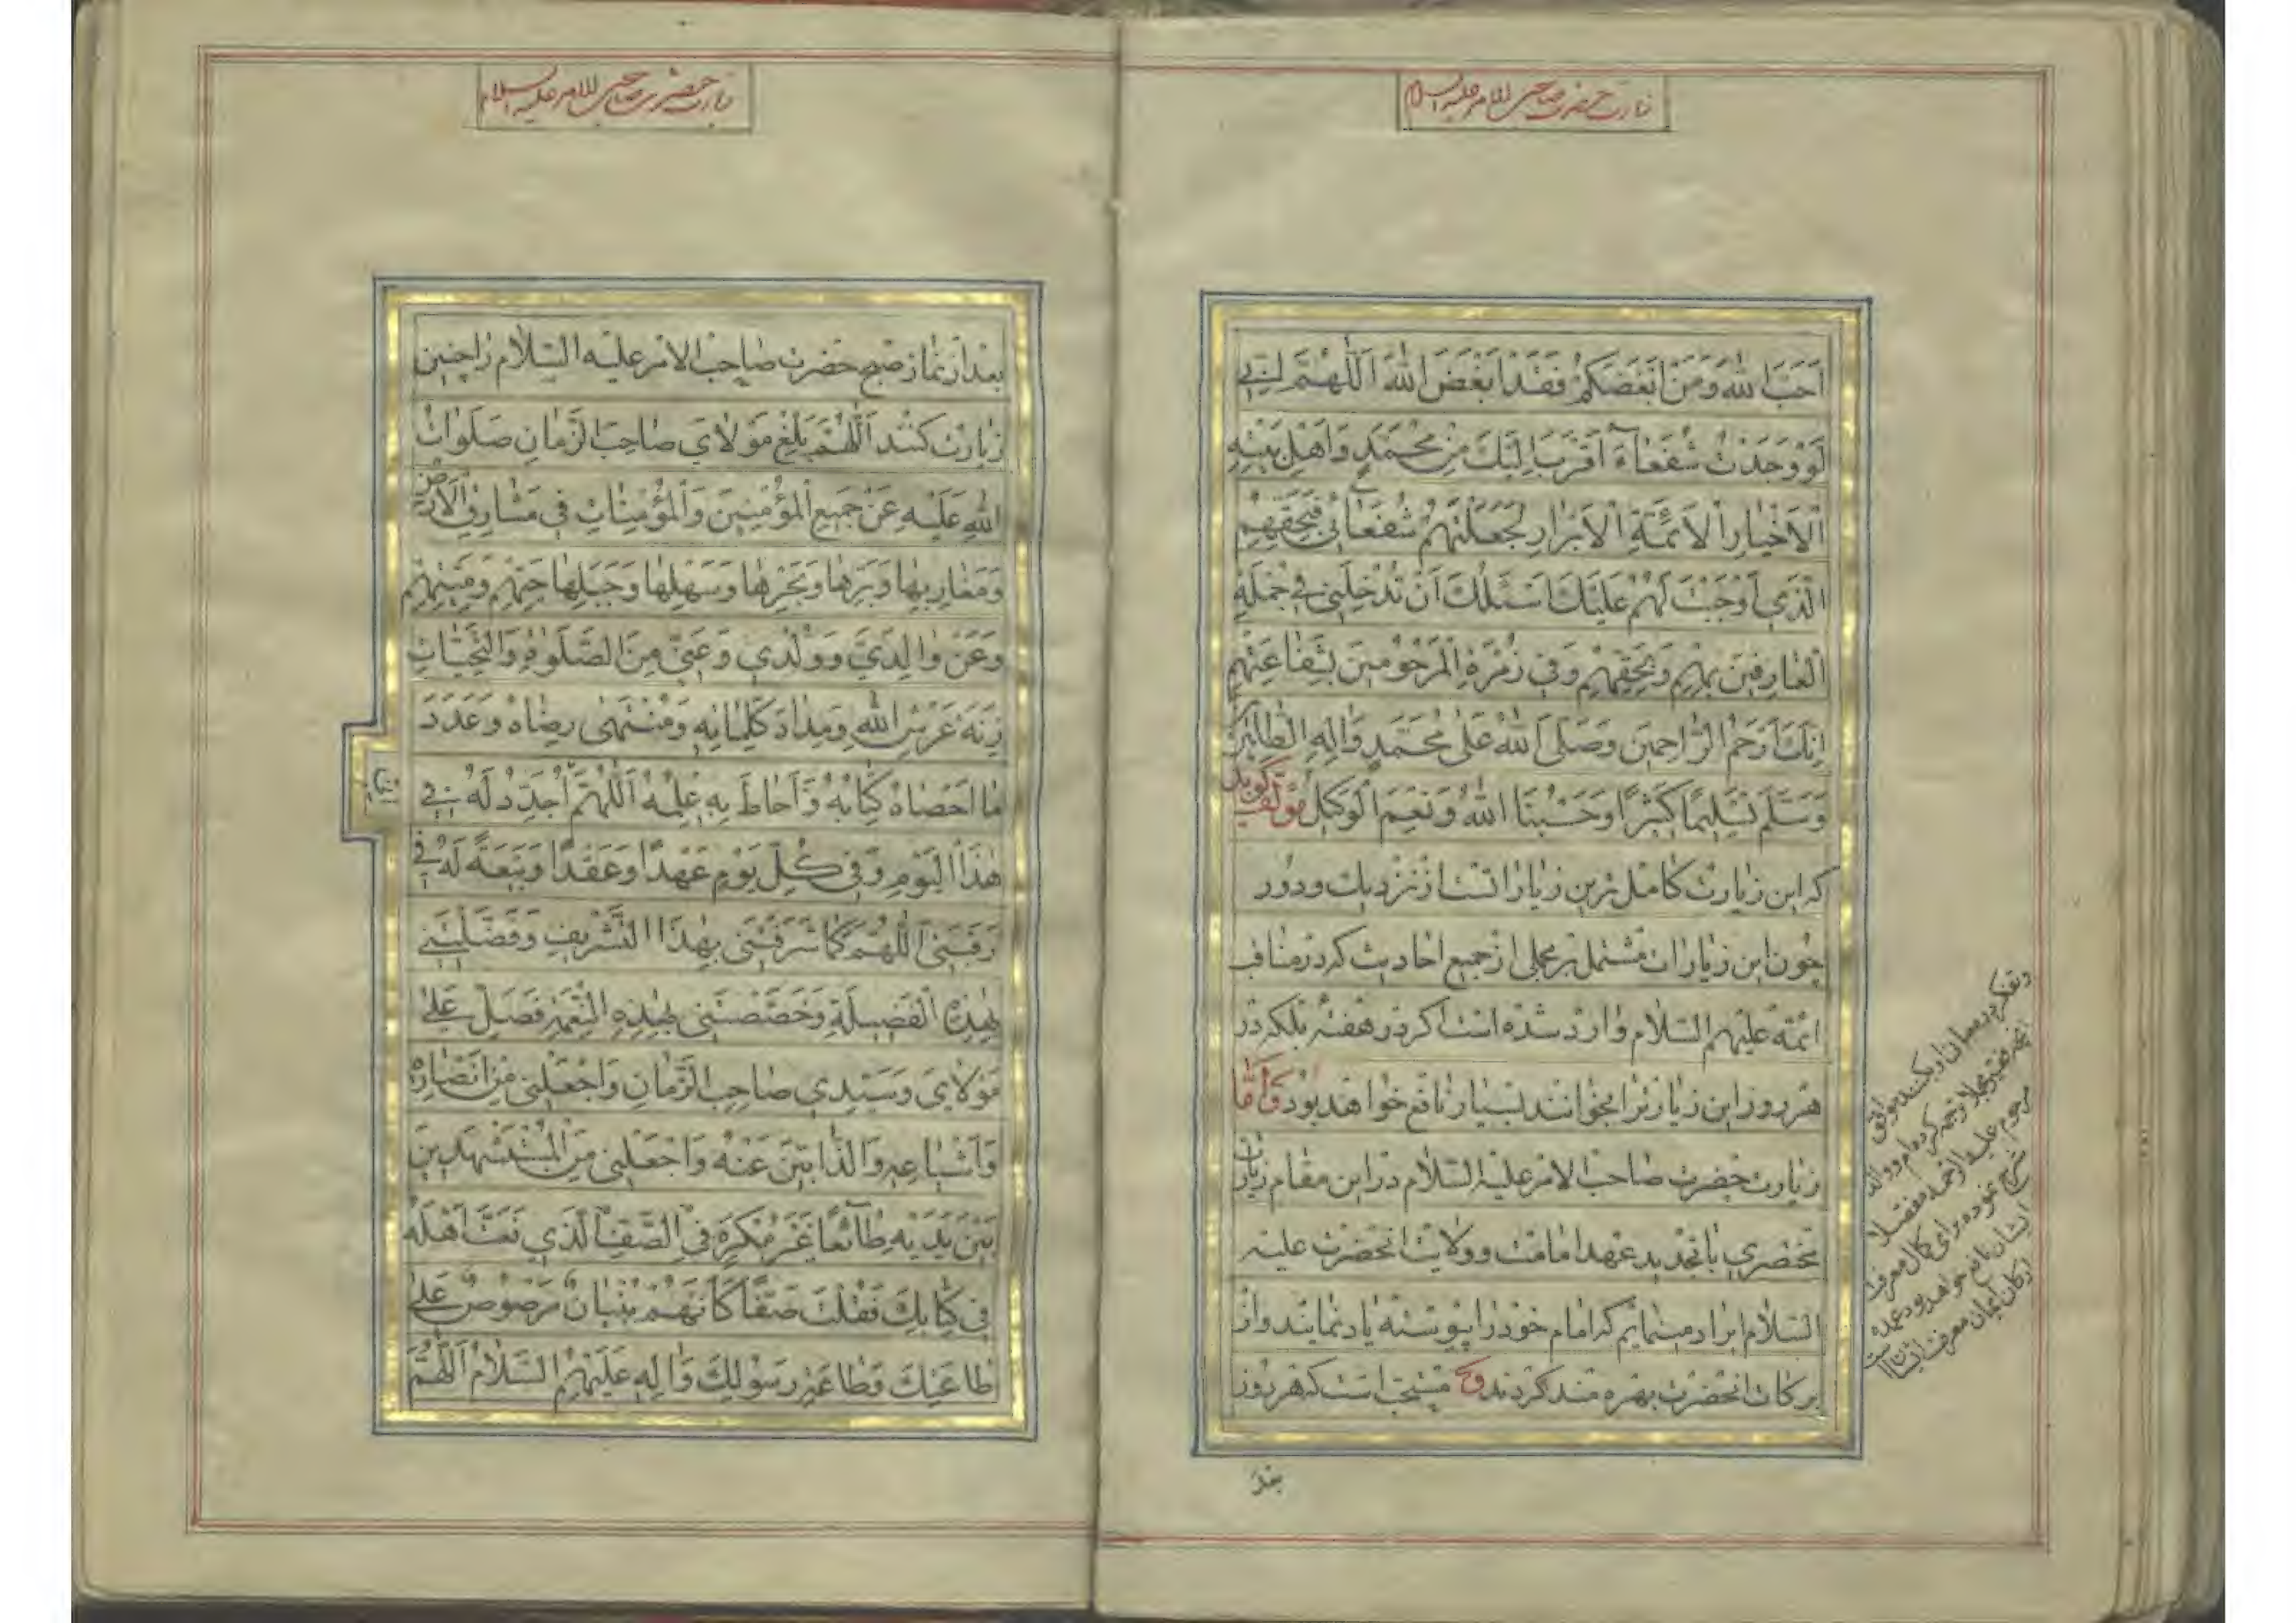 زیارت حضرت صاحب الامر علیه السلام
اَحَبَّ اللهَ وَمَنْ اَبْغَضَكُمْ فَقَدْ اَبْغَضَ اللهَ اَللّٰهُمَّ اِنّي
لَوْ وَجَدْتُ شُفَعَاءَ اَقْرَبَ اِلَيْكَ مِنْ مُحَمَّدٍ وَاَهْلِ بَيْتِهِ
الْاَخْيَارِ الْاَئِمَّةِ الْاَبْرَارِ لَجَعَلْتُهُمْ شُفَعَائي فَبِحَقِّهِمْ
الَّذي اَوْجَبْتَ لَهُمْ عَلَيْكَ اَسْئَلُكَ اَنْ تُدْخِلَني في جُمْلَةِ
الْعَارِفينَ بِهِمْ وَبِحَقِّهِمْ وَفي زُمْرَةِ الْمَرْحُومينَ بِشَفَاعَتِهِمْ
اِنَّكَ اَرْحَمُ الرَّاحِمينَ وَصَلَّى اللهُ عَلى مُحَمَّدٍ وَالِهِ الطَّاهِرينَ
وَسَلَّمَ تَسْليمًا كَثيرًا وَحَسْبُنَا اللهُ وَنِعْمَ الْوَكيلُ مؤلف کوید
که این زیارت کامل ترین زیاراتست از نزدیك ودور
چون این زیارات مشتمل بر مجملی از جمیع احادیث که در مناقب
ائمه علیهم السلام وارد شده است اکر در هفته بلکه در
هر روز این زیارت را بخوانند بسیار نافع خواهد بود وَاَمّا
زیارت حضرت صاحب الامر علیه السلام در این مقام زیارت
مختصری با تجدید عهد امامت وولایت انحضرت علیه
السلام ایراد مینمایم که امام خود را پیوسته یاد نمایند واز
برکات انحضرت بهره مند کردند و مستحب است که هر روز
بعد
وتفکر در معانی او بکنند
مرحوم علیه الرحمه مفصلا
شرح نموده برای کمال معرفت
ایشان نافع خواهد بود عمده
ارکان ایمان معرفت ایشان است
زیارت حضرت صاحب الامر علیه السلام
بعد از نماز صبح حضرت صاحب الامر علیه السلام را چنین
زیارت کنند اَللّٰهُمَّ بَلِّغْ مَوْلَايَ صَاحِبَ الزَّمَانِ صَلَوَاتُ
اللهِ عَلَيْهِ عَنْ جَميعِ الْمُؤْمِنينَ وَالْمُؤْمِنَاتِ في مَشَارِقِ الْاَرْضِ
وَمَغَارِبِهَا وَبَرِّهَا وَبَحْرِهَا وَسَهْلِهَا وَجَبَلِهَا حَيِّهِمْ وَمَيِّتِهِمْ
وَعَنْ وَالِدَيَّ وَوُلْدي وَعَنّي مِنَ الصَّلَوَاتِ وَالتَّحِيَّاتِ
زِنَةَ عَرْشِ اللهِ وَمِدَادَ كَلِمَاتِهِ وَمُنْتَهى رِضَاهُ وَعَدَدَ
مَا اَحْصَاهُ كِتَابُهُ وَاَحَاطَ بِهِ عِلْمُهُ اَللّٰهُمَّ اُجَدِّدُ لَهُ في
هٰذَا الْيَوْمِ وَفي كُلِّ يَوْمٍ عَهْدًا وَعَقْدًا وَبَيْعَةً لَهُ في
رَقَبَتي اَللّٰهُمَّ كَمَا شَرَّفْتَني بِهٰذَا التَّشْريفِ وَفَضَّلْتَني
بِهٰذِهِ الْفَضيلَةِ وَخَصَصْتَني بِهٰذِهِ النِّعْمَةِ فَصَلِّ عَلى
مَوْلَايَ وَسَيِّدي صَاحِبِ الزَّمَانِ وَاجْعَلْني مِنْ اَنْصَارِهِ
وَاَشْيَاعِهِ وَالذَّابّينَ عَنْهُ وَاجْعَلْني مِنَ الْمُسْتَشْهَدينَ
بَيْنَ يَدَيْهِ طَائِعًا غَيْرَ مُكْرَهٍ في الصَّفِّ الَّذي نَعَتَّ اَهْلَهُ
في كِتَابِكَ فَقُلْتَ صَفًّا كَاَنَّهُمْ بُنْيَانٌ مَرْصُوصٌ عَلى
طَاعَتِكَ وَطَاعَةِ رَسُولِكَ وَالِهِ عَلَيْهِمُ السَّلَامُ اَللّٰهُمَّ